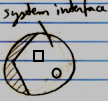 system interface